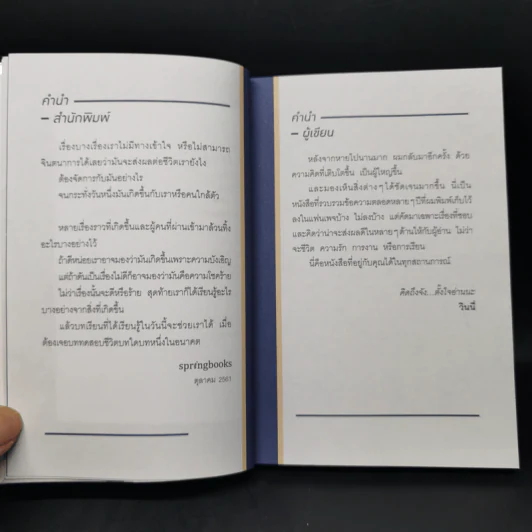 คำนำ
– สำนักพิมพ์
เรื่องบางเรื่องเราไม่มีทางเข้าใจ หรือไม่สามารถ
จินตนาการได้เลยว่ามันจะส่งผลต่อชีวิตเรายังไง
ต้องจัดการกับมันอย่างไร
จนกระทั่งวันหนึ่งมันเกิดขึ้นกับเราหรือคนใกล้ตัว
หลายเรื่องราวที่เกิดขึ้นและผู้คนที่ผ่านเข้ามาล้วนทิ้ง
อะไรบางอย่างไว้
ถ้าดีหน่อยเราอาจมองว่ามันเกิดขึ้นเพราะความบังเอิญ
แต่ถ้าดันเป็นเรื่องไม่ดีก็อาจมองว่ามันคือความโชคร้าย
ไม่ว่าเรื่องนั้นจะดีหรือร้าย สุดท้ายเราก็ได้เรียนรู้อะไร
บางอย่างจากสิ่งที่เกิดขึ้น
แล้วบทเรียนที่ได้เรียนรู้ในวันนี้จะช่วยเราได้ เมื่อ
ต้องเจอบททดสอบชีวิตบทใดบทหนึ่งในอนาคต
springbooks
ตุลาคม 2561
คำนำ
– ผู้เขียน
หลังจากหายไปนานมาก ผมกลับมาอีกครั้ง ด้วย
ความคิดที่เติบโตขึ้น เป็นผู้ใหญ่ขึ้น
และมองเห็นสิ่งต่างๆ ได้ชัดเจนมากขึ้น นี่เป็น
หนังสือที่รวบรวมข้อความตลอดหลายๆ ปีที่ผมพิมพ์เก็บไว้
ลงในแฟนเพจบ้าง ไม่ลงบ้าง แต่คัดมาเฉพาะเรื่องที่ชอบ
และคิดว่าน่าจะส่งผลดีในหลายๆ ด้านให้กับผู้อ่าน ไม่ว่า
จะชีวิต ความรัก การงาน หรือการเรียน
นี่คือหนังสือที่อยู่กับคุณได้ในทุกสถานการณ์
คิดถึงจัง...ตั้งใจอ่านนะ
วินนี่